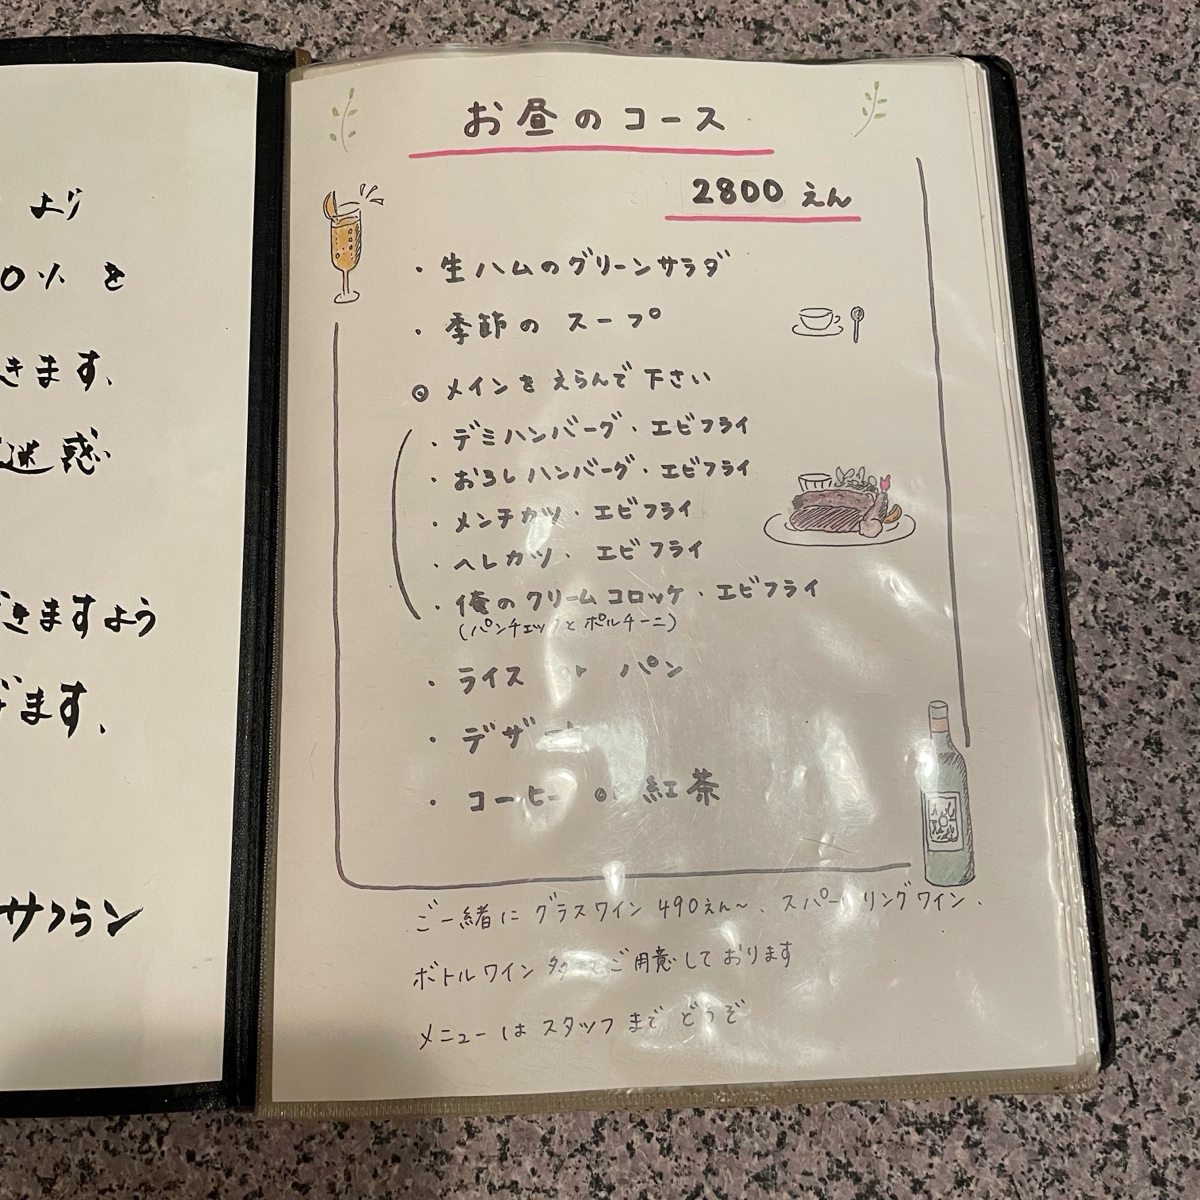 より
0% を
きます、
迷惑
きますよう
ます、
サフラン
お昼のコース
2800 えん
・生ハムのグリーンサラダ
・季節の スープ
◎ メインを えらんで 下さい
・デミハンバーグ・エビフライ
・おろしハンバーグ・エビフライ
・メンチカツ・エビフライ
・ヘレカツ・エビフライ
・俺のクリームコロッケ・エビフライ
(パンチェッタと ポルチーニ)
・ライス or パン
・デザート
・コーヒー or 紅茶
ご一緒に グラスワイン 490えん〜、スパークリングワイン、
ボトルワイン ご用意しております
メニューは スタッフ まで どうぞ